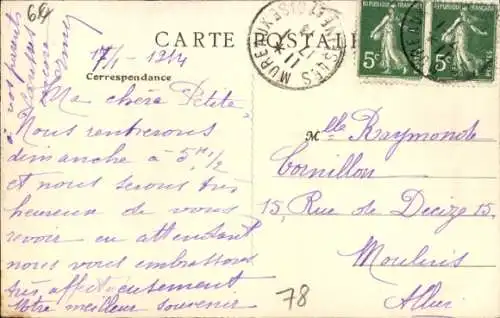 64
CARTE POSTALE
RÉPUBLIQUE FRANÇAISE
5c
RÉPUBLIQUE FRANÇAISE
5c
17/1 - 1914
Correspondance
Ma chère Petite
Nous rentrerons
dimanche à 5 h 1/2
et nous serons très
heureux de vous
revoir en attendant
nous vous embrassons
très affectueusement
Notre meilleur souvenir
à vos parents
Mlle Raymonde
Cornillon
15, Rue de Decize 15.
Moulins
Allier
78